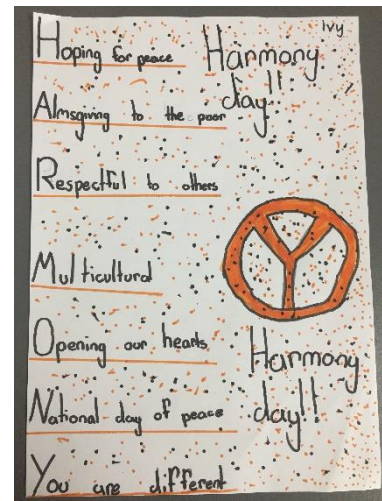 Ivy
Hoping for peace
Harmony
day!!
Almsgiving to the poor
Respectful to others
Multicultural
Opening our hearts
Harmony
day!!
National day of peace
You are different